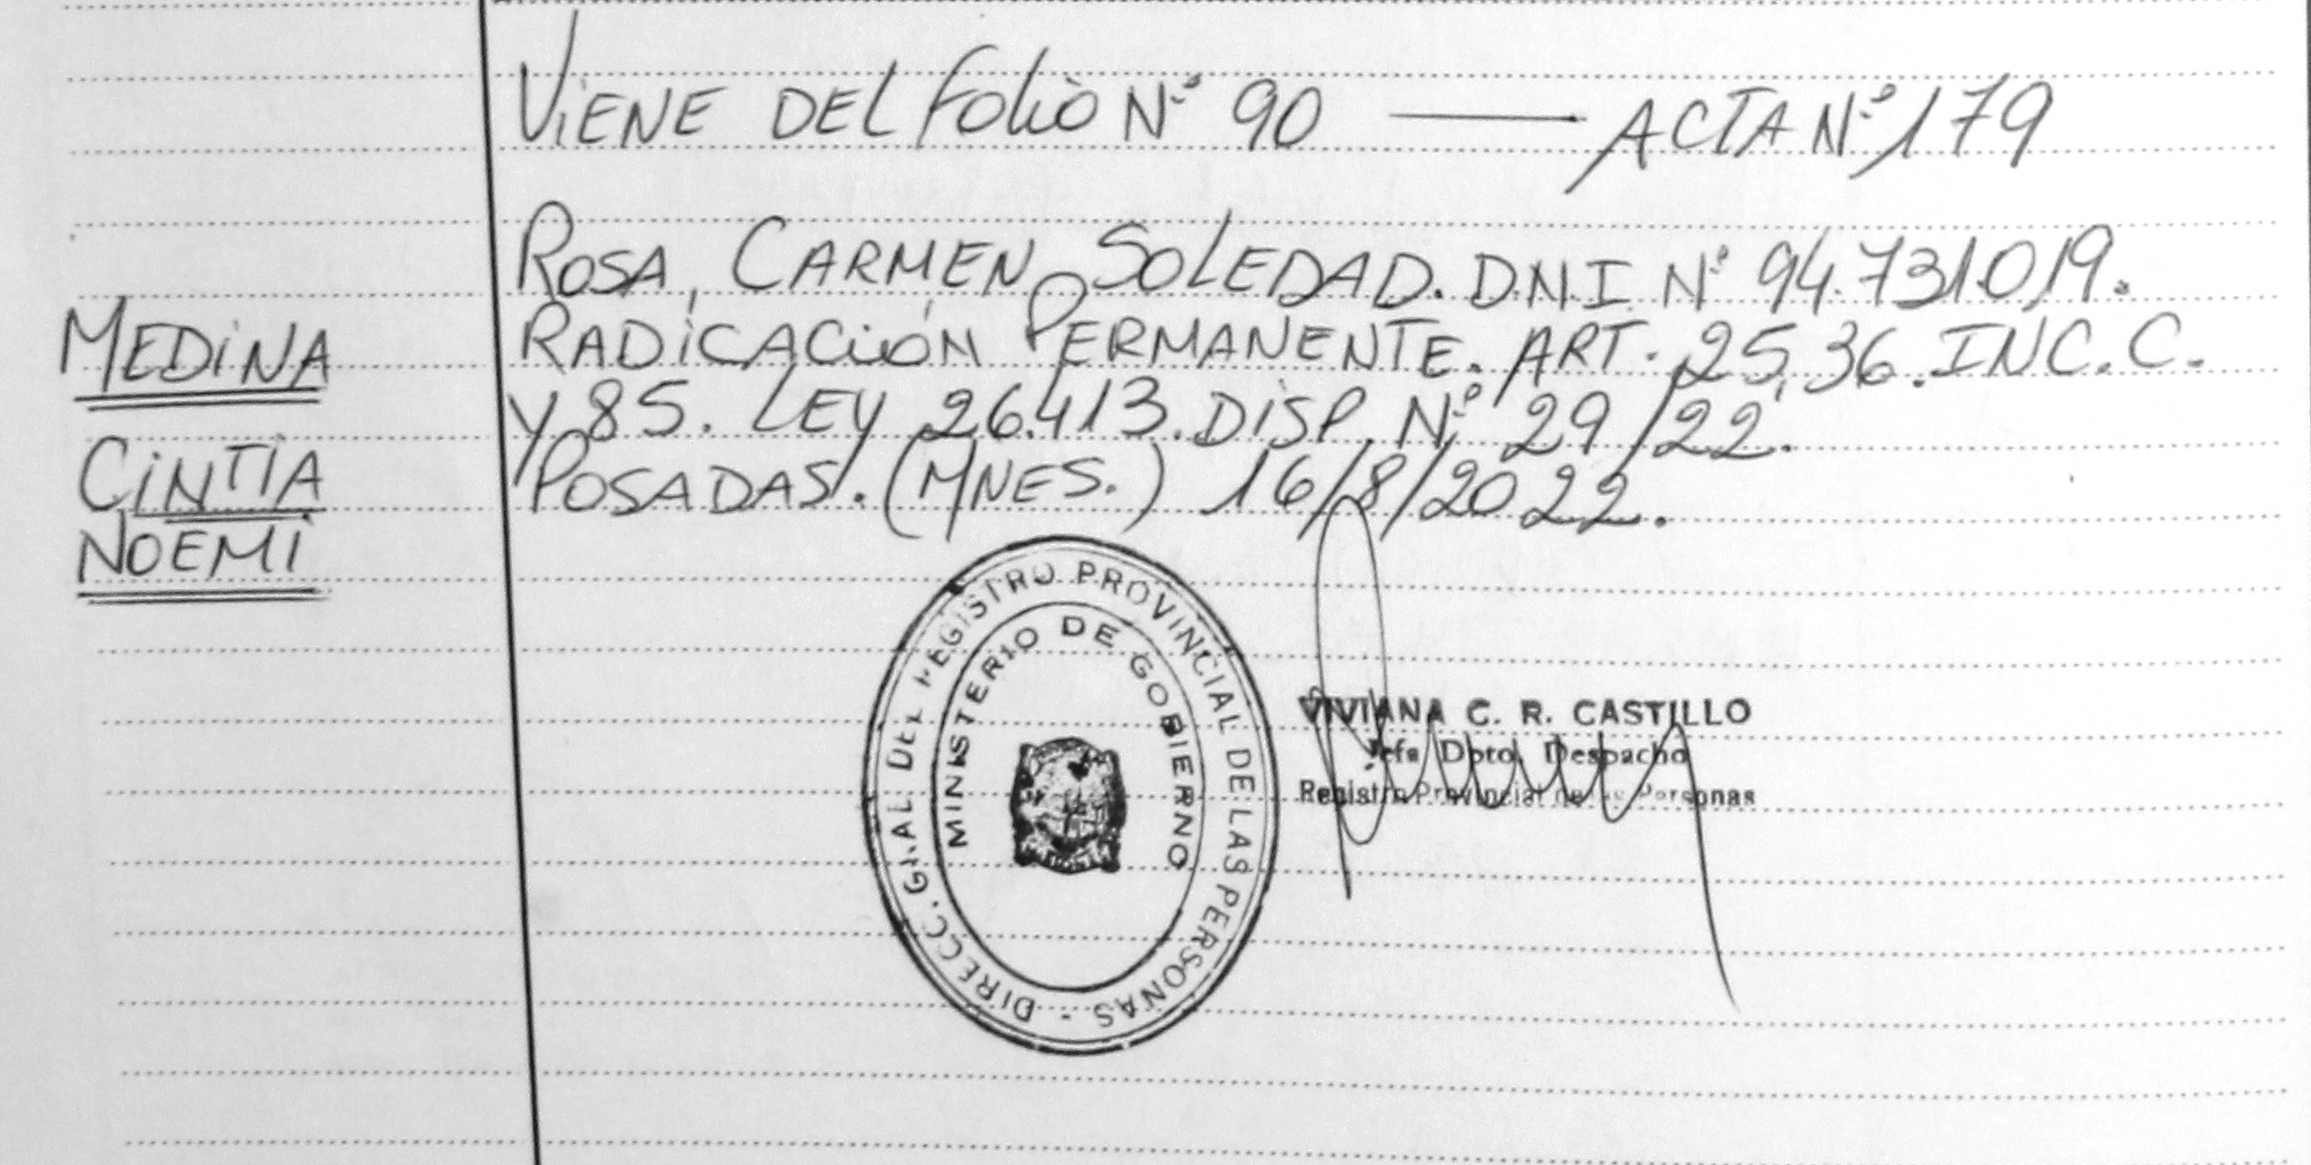 ViENE DEL Folio Nº 90 — ACTA Nº 179
ROSA, CARMEN SOLEDAD. D.N.I Nº 94.731.019.
RADiCACiÓN PERMANENTE. ART. 25, 36. INC. C.
Y 85. LEY 26.413. DiSP. Nº 29/22.
POSADAS. (MNES.) 16/8/2022.
MEDiNA
CiNTiA
NOEMi
DIRECC. GRAL. DEL REGISTRO PROVINCIAL DE LAS PERSONAS -
MINISTERIO DE GOBIERNO
VIVIANA C. R. CASTILLO
Jefa Dpto. Despacho
Registro Provincial de las Personas